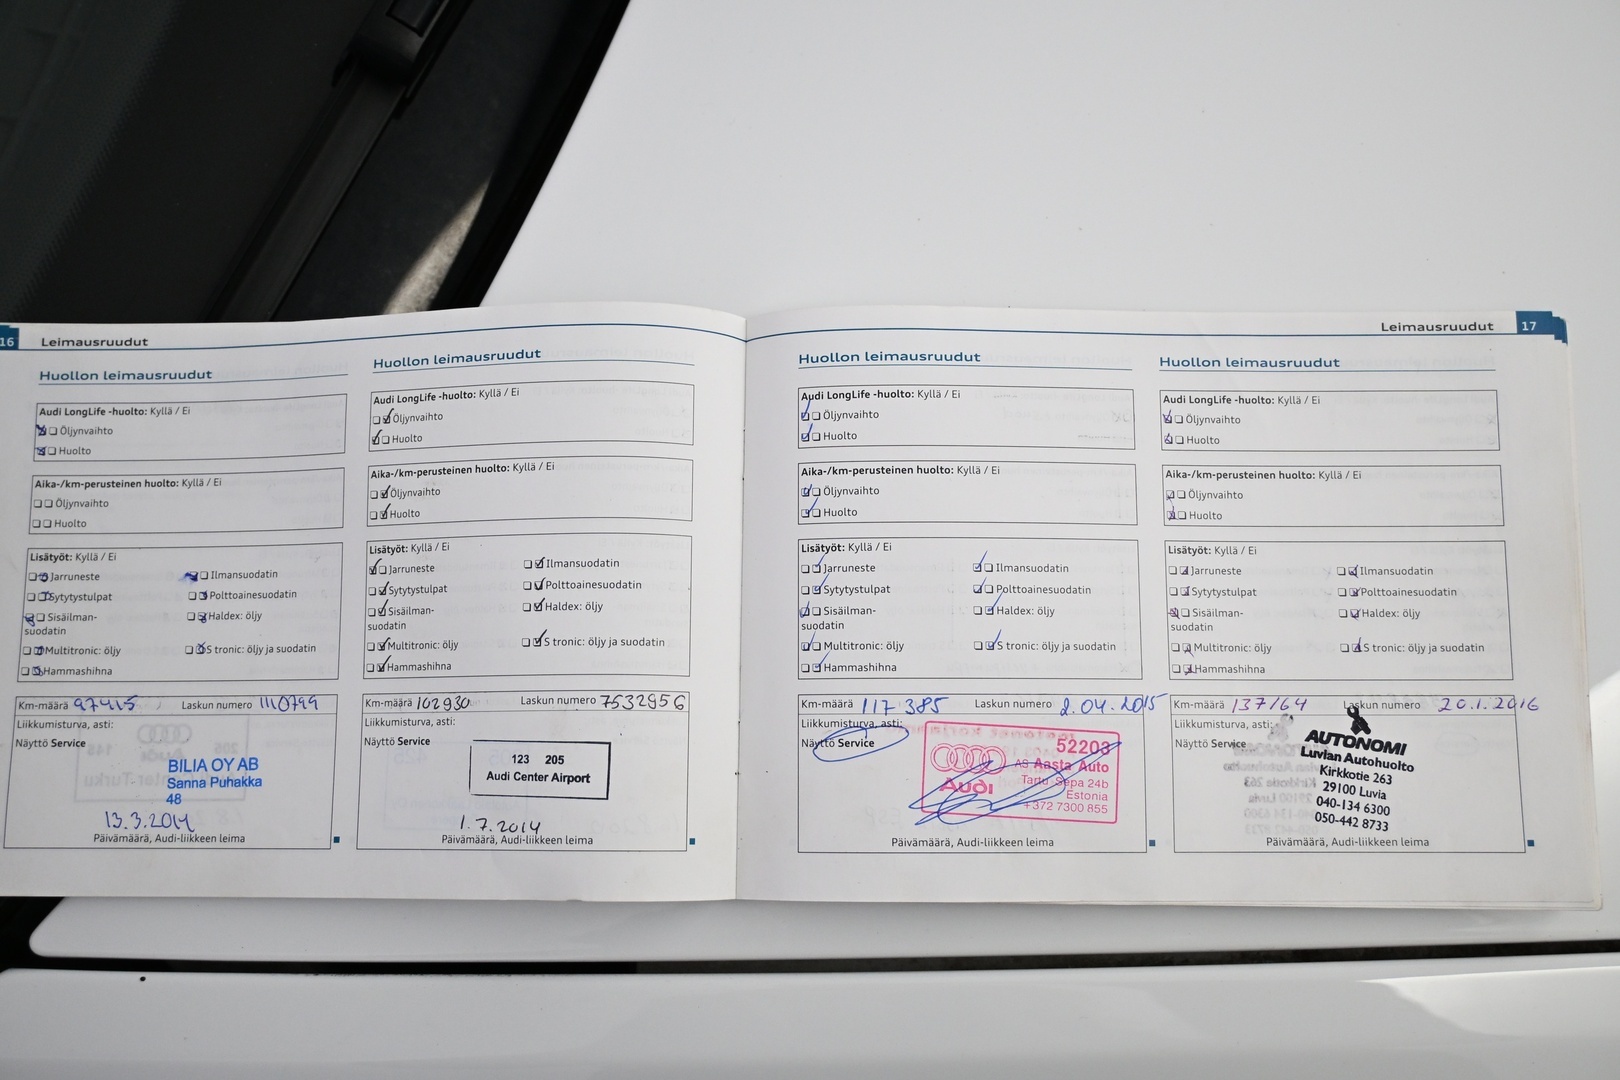 16 Leimausruudut
Huollon leimausruudut
Audi LongLife -huolto: Kyllä / Ei
Öljynvaihto
Huolto
Aika-/km-perusteinen huolto: Kyllä / Ei
Öljynvaihto
Huolto
Lisätyöt: Kyllä / Ei
Jarruneste
Ilmansuodatin
Sytytystulpat
Polttoainesuodatin
Sisäilman-
suodatin
Haldex: öljy
Multitronic: öljy
S tronic: öljy ja suodatin
Hammashihna
Km-määrä 97415 Laskun numero 1110799
Liikkumisturva, asti:
Näyttö Service
BILIA OY AB
Sanna Puhakka
48
13.3.2014
Päivämäärä, Audi-liikkeen leima
Huollon leimausruudut
Audi LongLife -huolto: Kyllä / Ei
Öljynvaihto
Huolto
Aika-/km-perusteinen huolto: Kyllä / Ei
Öljynvaihto
Huolto
Lisätyöt: Kyllä / Ei
Jarruneste
Ilmansuodatin
Sytytystulpat
Polttoainesuodatin
Sisäilman-
suodatin
Haldex: öljy
Multitronic: öljy
S tronic: öljy ja suodatin
Hammashihna
Km-määrä 102930 Laskun numero 7532956
Liikkumisturva, asti:
Näyttö Service
123 205
Audi Center Airport
1.7.2014
Päivämäärä, Audi-liikkeen leima
Leimausruudut 17
Huollon leimausruudut
Audi LongLife -huolto: Kyllä / Ei
Öljynvaihto
Huolto
Aika-/km-perusteinen huolto: Kyllä / Ei
Öljynvaihto
Huolto
Lisätyöt: Kyllä / Ei
Jarruneste
Ilmansuodatin
Sytytystulpat
Polttoainesuodatin
Sisäilman-
suodatin
Haldex: öljy
Multitronic: öljy
S tronic: öljy ja suodatin
Hammashihna
Km-määrä 117 385 Laskun numero 2.04.2015
Liikkumisturva, asti:
Näyttö Service
52203
AS Aasta Auto
Audi
Tartu, Sepa 24b
Estonia
+372 7300 855
Päivämäärä, Audi-liikkeen leima
Huollon leimausruudut
Audi LongLife -huolto: Kyllä / Ei
Öljynvaihto
Huolto
Aika-/km-perusteinen huolto: Kyllä / Ei
Öljynvaihto
Huolto
Lisätyöt: Kyllä / Ei
Jarruneste
Ilmansuodatin
Sytytystulpat
Polttoainesuodatin
Sisäilman-
suodatin
Haldex: öljy
Multitronic: öljy
S tronic: öljy ja suodatin
Hammashihna
Km-määrä 137164 Laskun numero 20.1.2016
Liikkumisturva, asti:
Näyttö Service
AUTONOMI
Luvian Autohuolto
Kirkkotie 263
29100 Luvia
040-134 6300
050-442 8733
Päivämäärä, Audi-liikkeen leima